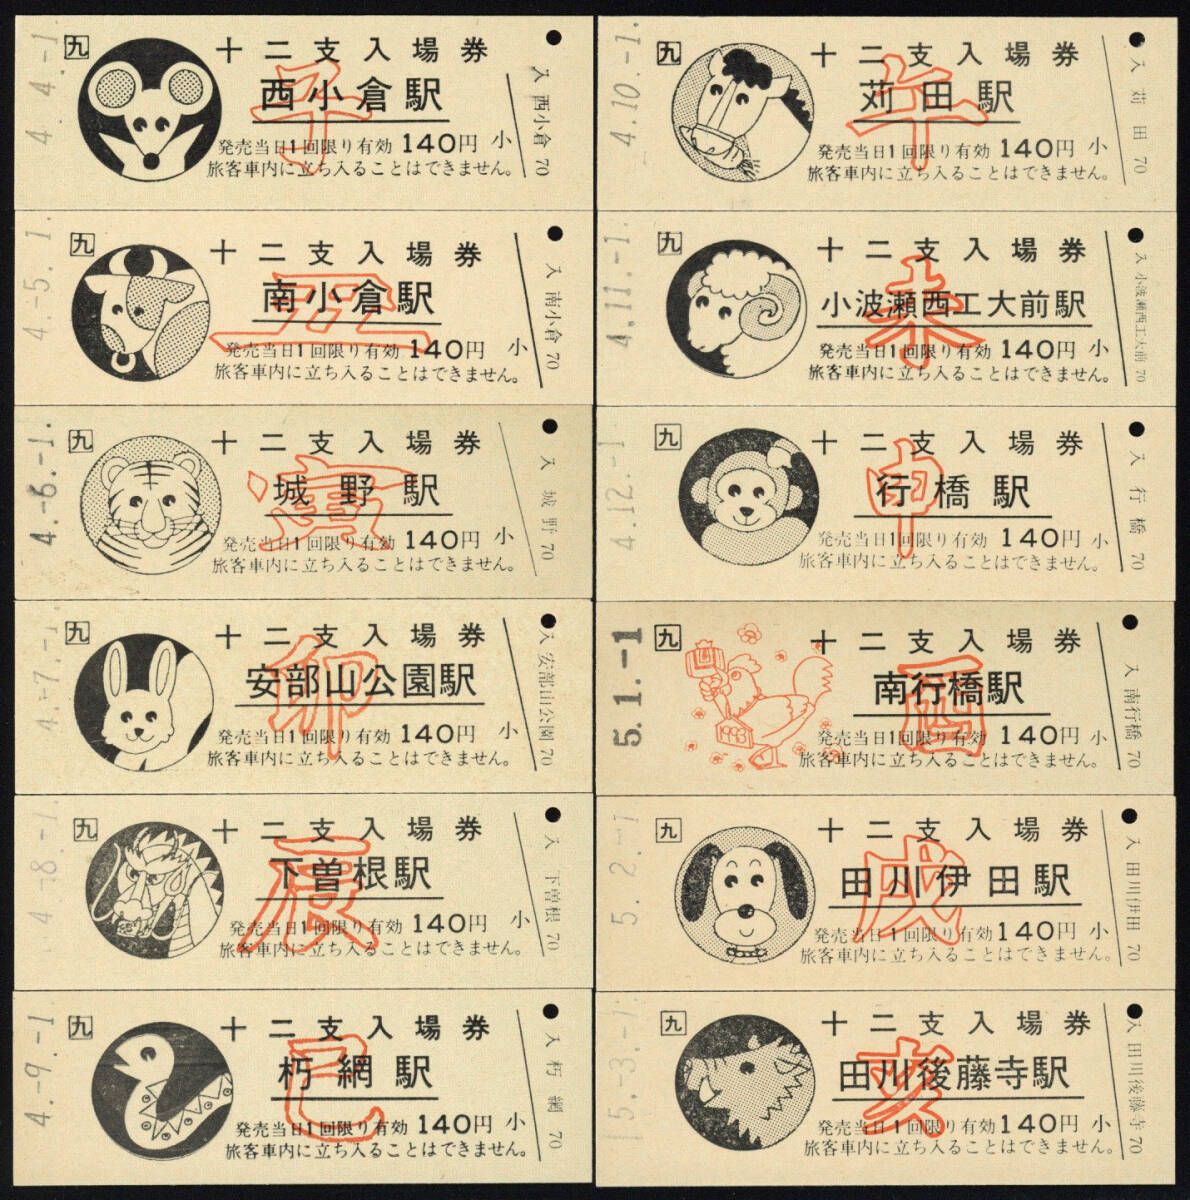 4.-4.-1
九
十二支入場券
子
西小倉駅
発売当日1回限り有効 140円 小
旅客車内に立ち入ることはできません。
入 西小倉 70
4.-5.-1
九
十二支入場券
丑
南小倉駅
発売当日1回限り有効 140円 小
旅客車内に立ち入ることはできません。
入 南小倉 70
4.-6.-1.
九
十二支入場券
寅
城野駅
発売当日1回限り有効 140円 小
旅客車内に立ち入ることはできません。
入 城野 70
4.-7.-1
九
十二支入場券
卯
安部山公園駅
発売当日1回限り有効 140円 小
旅客車内に立ち入ることはできません。
入 安部山公園 70
4.-8.-1
九
十二支入場券
辰
下曽根駅
発売当日1回限り有効 140円 小
旅客車内に立ち入ることはできません。
入 下曽根 70
4.-9.-1
九
十二支入場券
巳
朽網駅
発売当日1回限り有効 140円 小
旅客車内に立ち入ることはできません。
入 朽網 70
4.10.-1.
九
十二支入場券
午
苅田駅
発売当日1回限り有効 140円 小
旅客車内に立ち入ることはできません。
入 苅田 70
4.11.-1.
九
十二支入場券
未
小波瀬西工大前駅
発売当日1回限り有効 140円 小
旅客車内に立ち入ることはできません。
入 小波瀬西工大前 70
4.12.-1
九
十二支入場券
申
行橋駅
発売当日1回限り有効 140円 小
旅客車内に立ち入ることはできません。
入 行橋 70
5.1.-1
九
十二支入場券
酉
南行橋駅
1993
発売当日1回限り有効 140円 小
旅客車内に立ち入ることはできません。
入 南行橋 70
5.2.-1
九
十二支入場券
戌
田川伊田駅
発売当日1回限り有効 140円 小
旅客車内に立ち入ることはできません。
入 田川伊田 70
5.-3.-1
九
十二支入場券
亥
田川後藤寺駅
発売当日1回限り有効 140円 小
旅客車内に立ち入ることはできません。
入 田川後藤寺 70